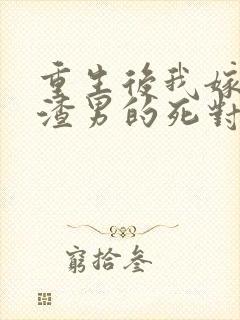 重生後我嫁
渣男的死對
窮拾叁